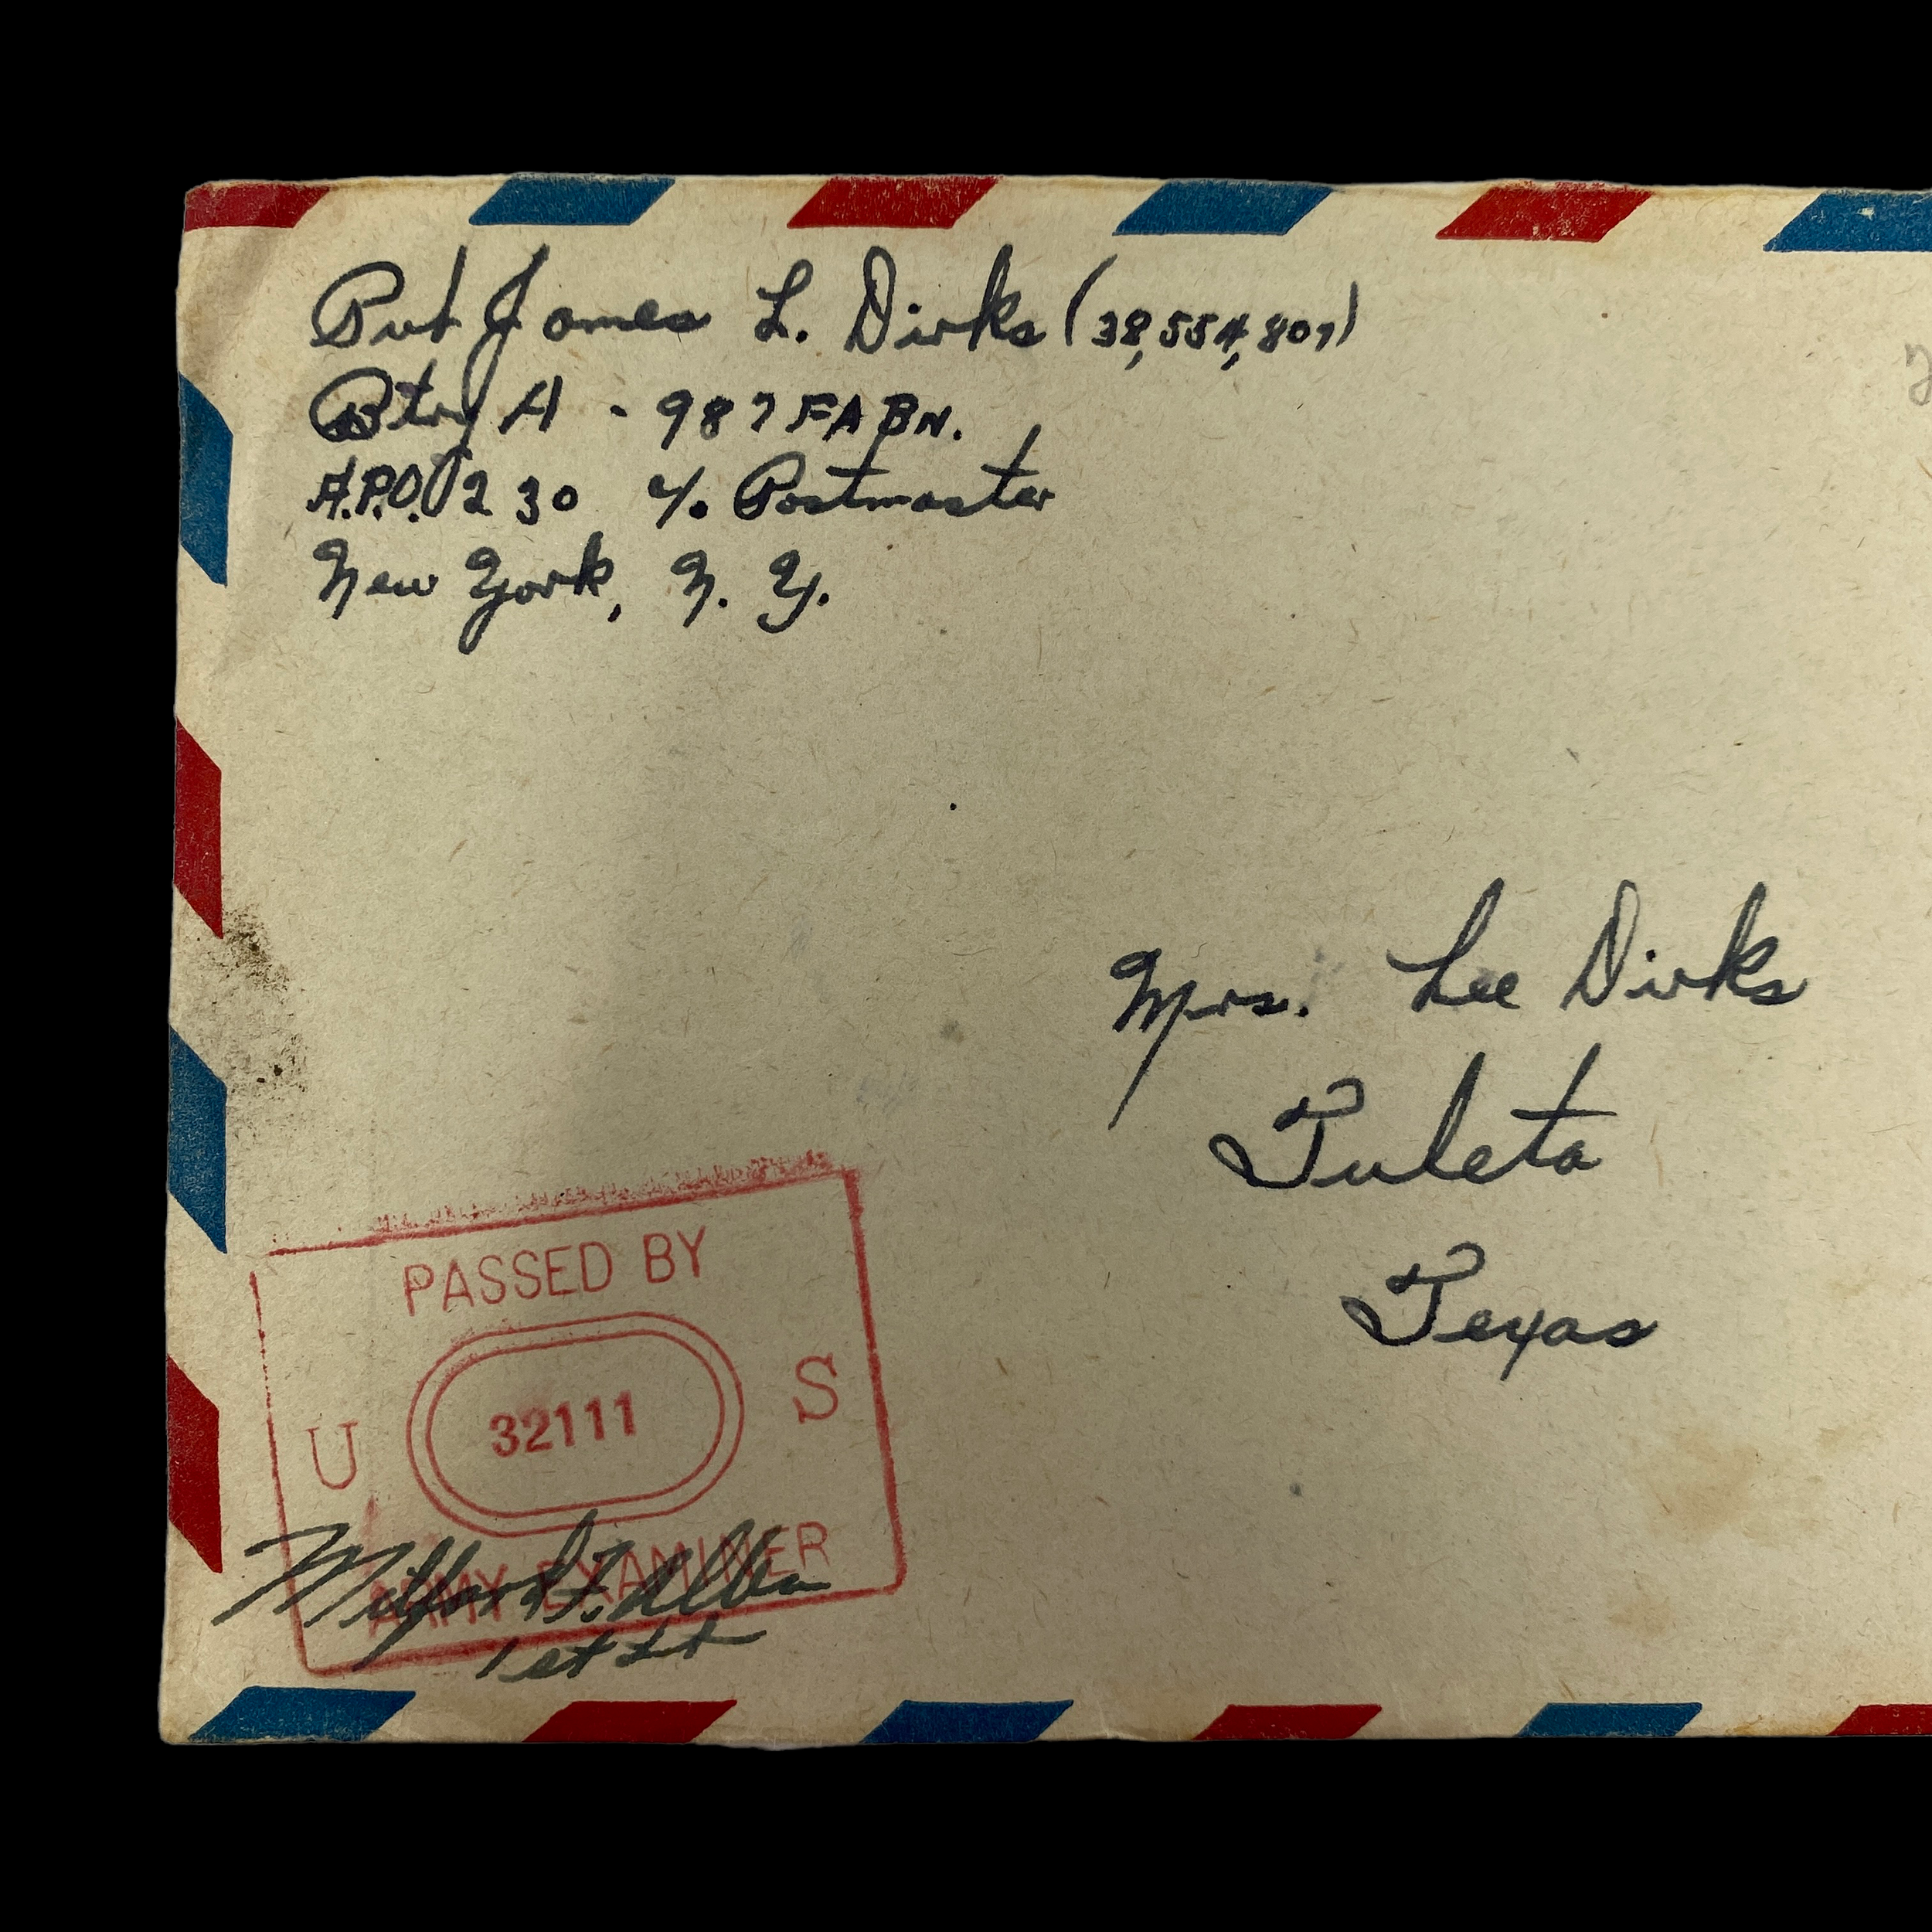 Pvt James L. Dirks (38,554,807)
Btry A - 987 FA BN.
A.P.O. 230 c/o Postmaster
New York, N. Y.
Mrs. Lee Dirks
Tuleta
Texas
PASSED BY
U 32111 S
ARMY EXAMINER
Milford F.
1st Lt